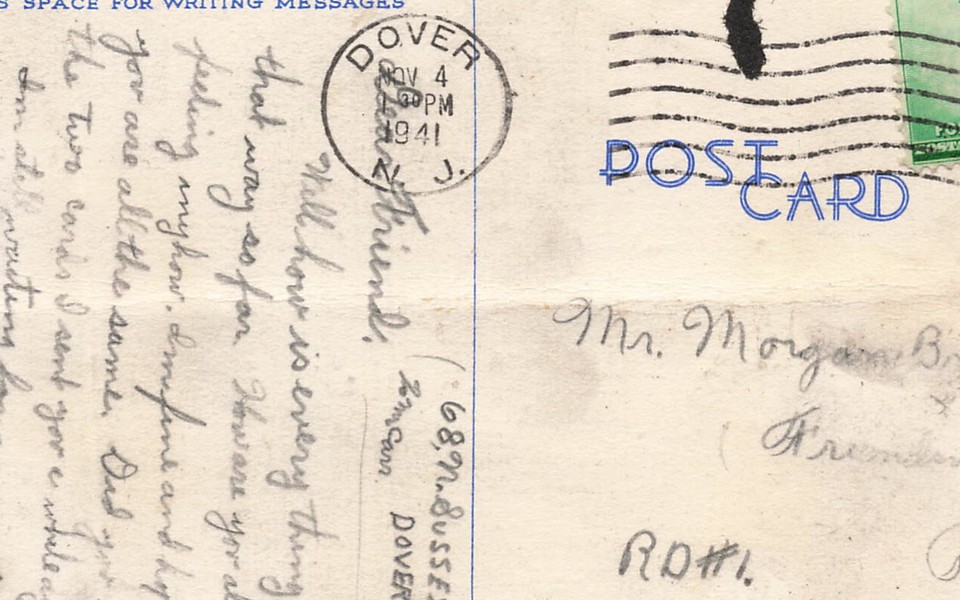 S SPACE FOR WRITING MESSAGES
DOVER
NOV 4
1 30 PM
1941
N. J.
POST
CARD
Mr. Morgan
RD#1.
68 N. SUSSE
DOVER
Friend,
Well how is every thing
that way so far. How are you al
feeling myhow. I'm fine and
you are all the same. Did you
the two cards I sent you a while a
I'm still waiting